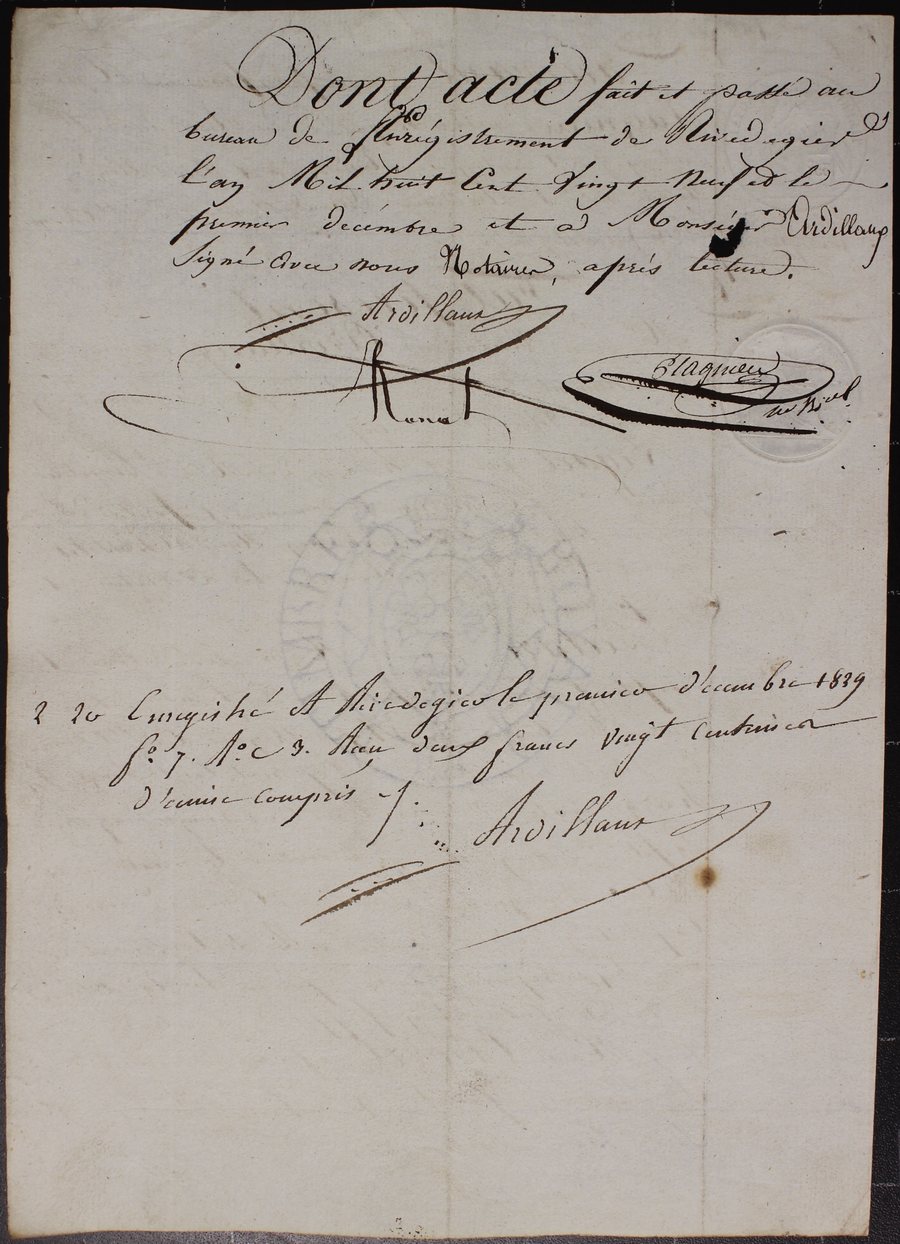 Dont acte fait et passé au
bureau de l'Enrégistrement de Rivedegier
l'an Mil huit Cent Vingt Neuf et le
premier décembre et a Monsieur Ardillaux
Signé avec nous Notaires, après lecture.
Ardillaux
Ronat
2 20 Enregistré A Rivedegier le premier décembre 1829
fo. 7. Ro. C 3. Reçu deux francs vingt centimes
d'eime compris
Ardillaux